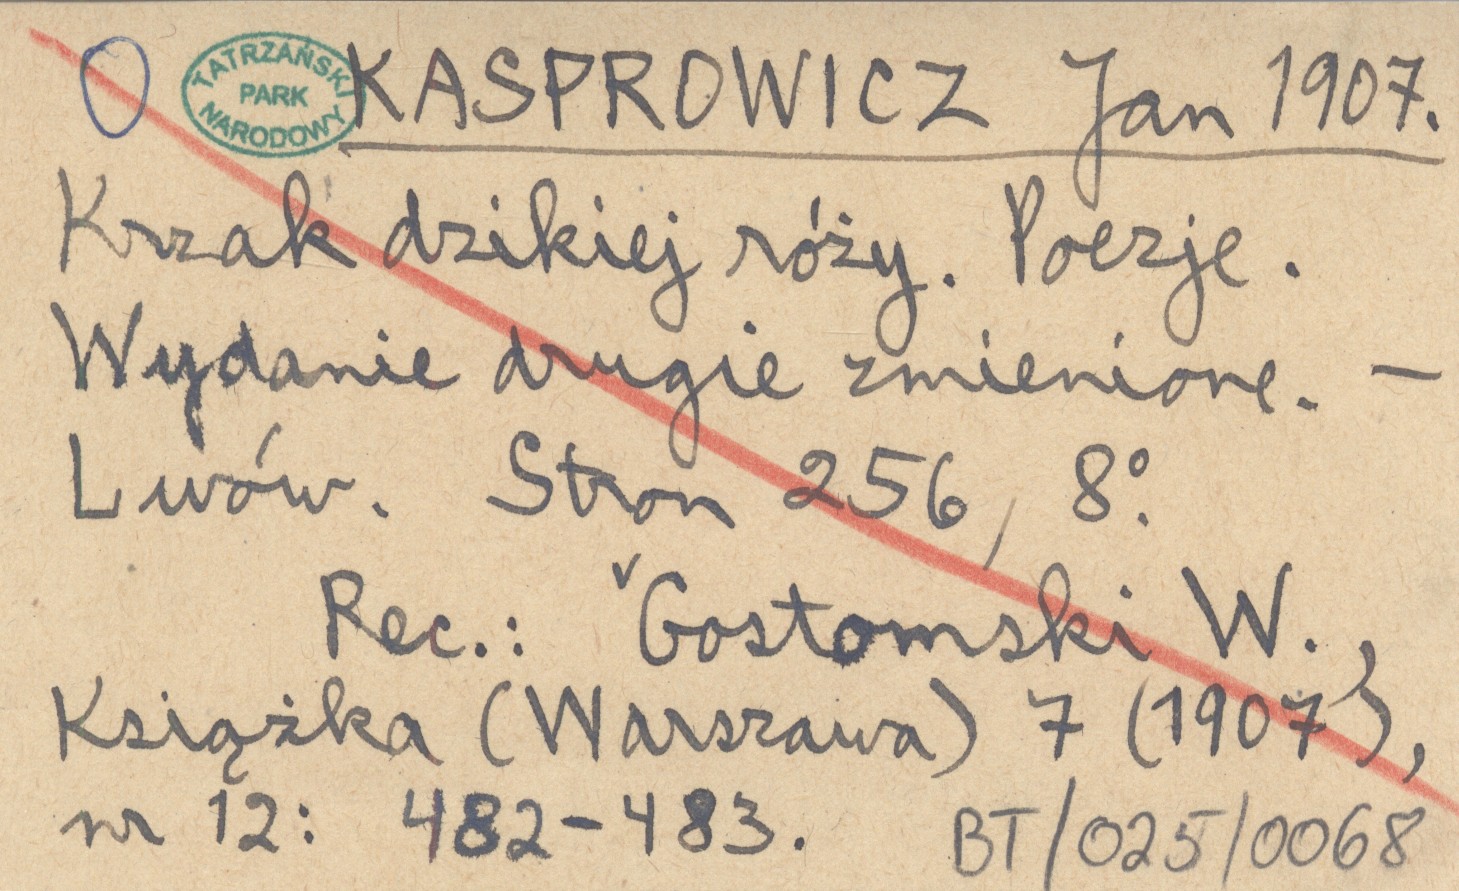 TATRZAŃSKI PARK NARODOWY
KASPROWICZ Jan 1907.
Krzak dzikiej róży. Poezje.
Wydanie drugie zmienione. —
Lwów. Stron 256, 8°.
Rec.: Gostomski W.,
Książka (Warszawa) 7 (1907),
nr 12: 482-483.
BT/025/0068